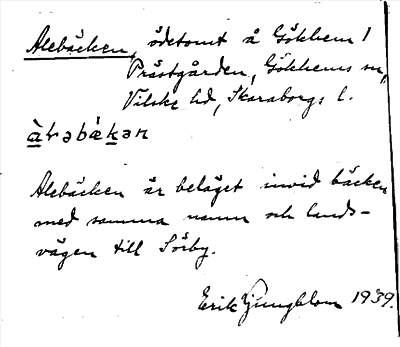 Alebäcken, ödetomt å Gökhem 1
Prästgården, Gökhems sn,
Vilske hd, Skaraborgs l.
àɽəbæ̀kən
Alebäcken är beläget invid bäcken
med samma namn och lands-
vägen till Sörby.
Erik Ljungblom 1939.